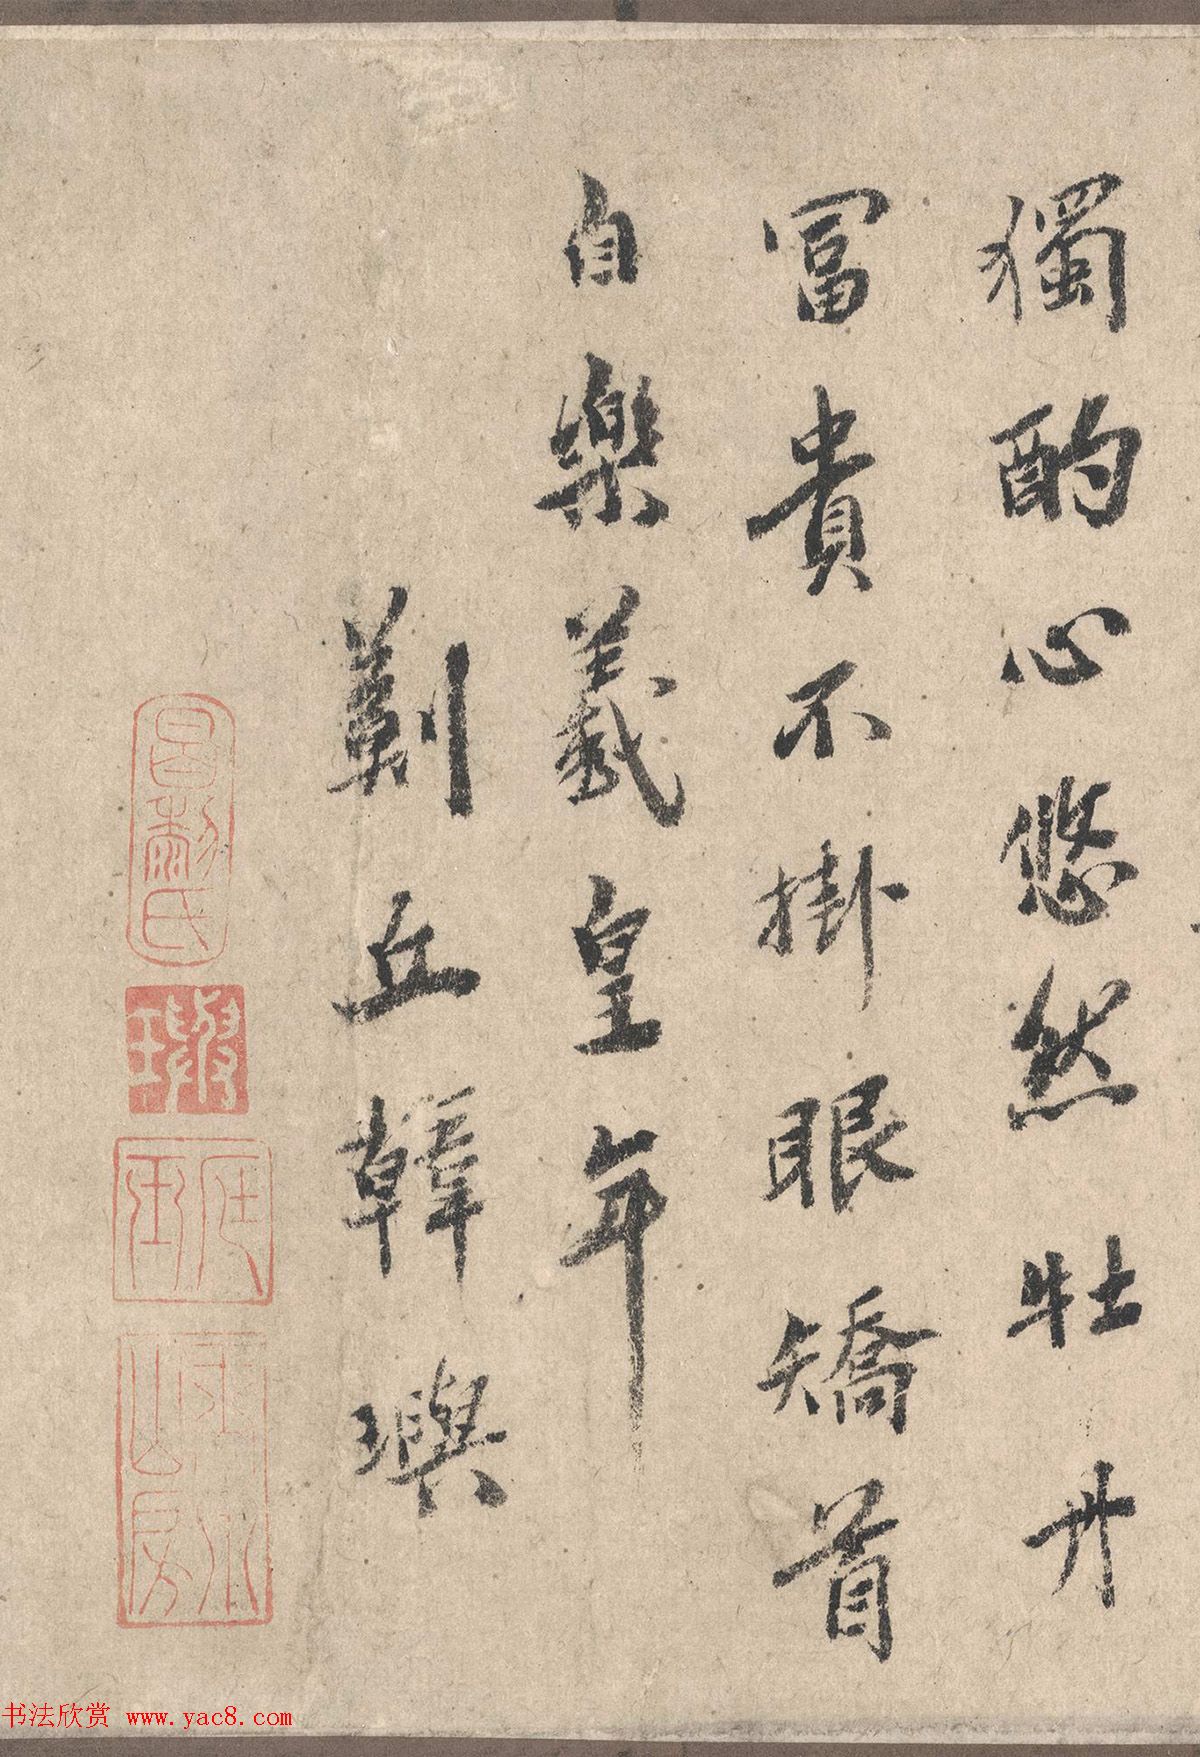 獨酌心悠然牡丹
富貴不掛眼矯首
自樂羲皇年
薊丘韓璵
書法欣赏 www.yac8.com